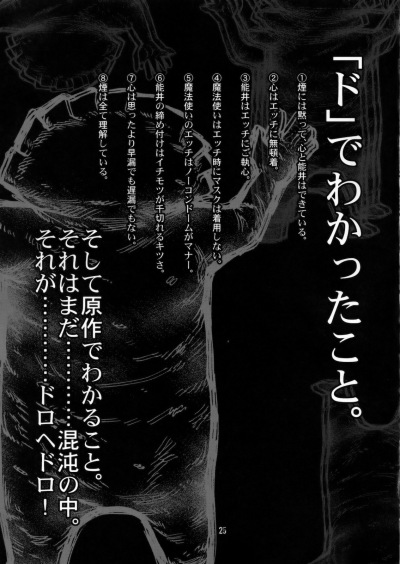 「ド」でわかったこと。
①煙には黙って、心と能井はできている。
②心はエッチに無頓着。
③能井はエッチにご執心。
④魔法使いはエッチ時にマスクは着用しない。
⑤魔法使いのエッチはノーコンドームがマナー。
⑥能井の締め付けはイチモツが千切れるキツさ。
⑦心は思ったより早漏でも遅漏でもない。
⑧煙は全て理解している。
そして原作でわかること。
それはまだ…………混沌の中。
それが…………ドロヘドロ！
25